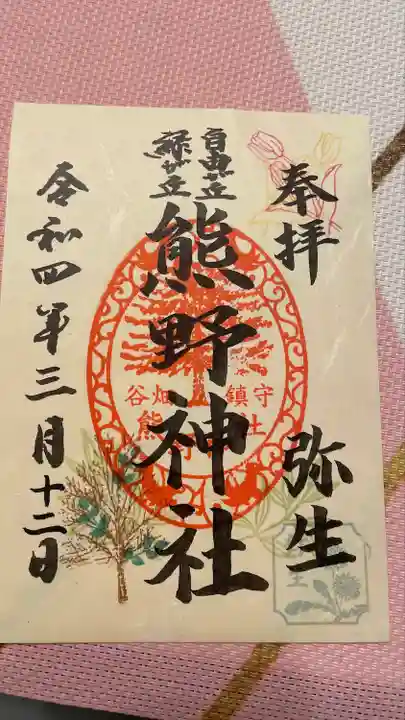 奉拝
弥生
自由が丘
緑が丘
熊野神社
谷畑 鎮守
熊野 社
令和四年三月十二日